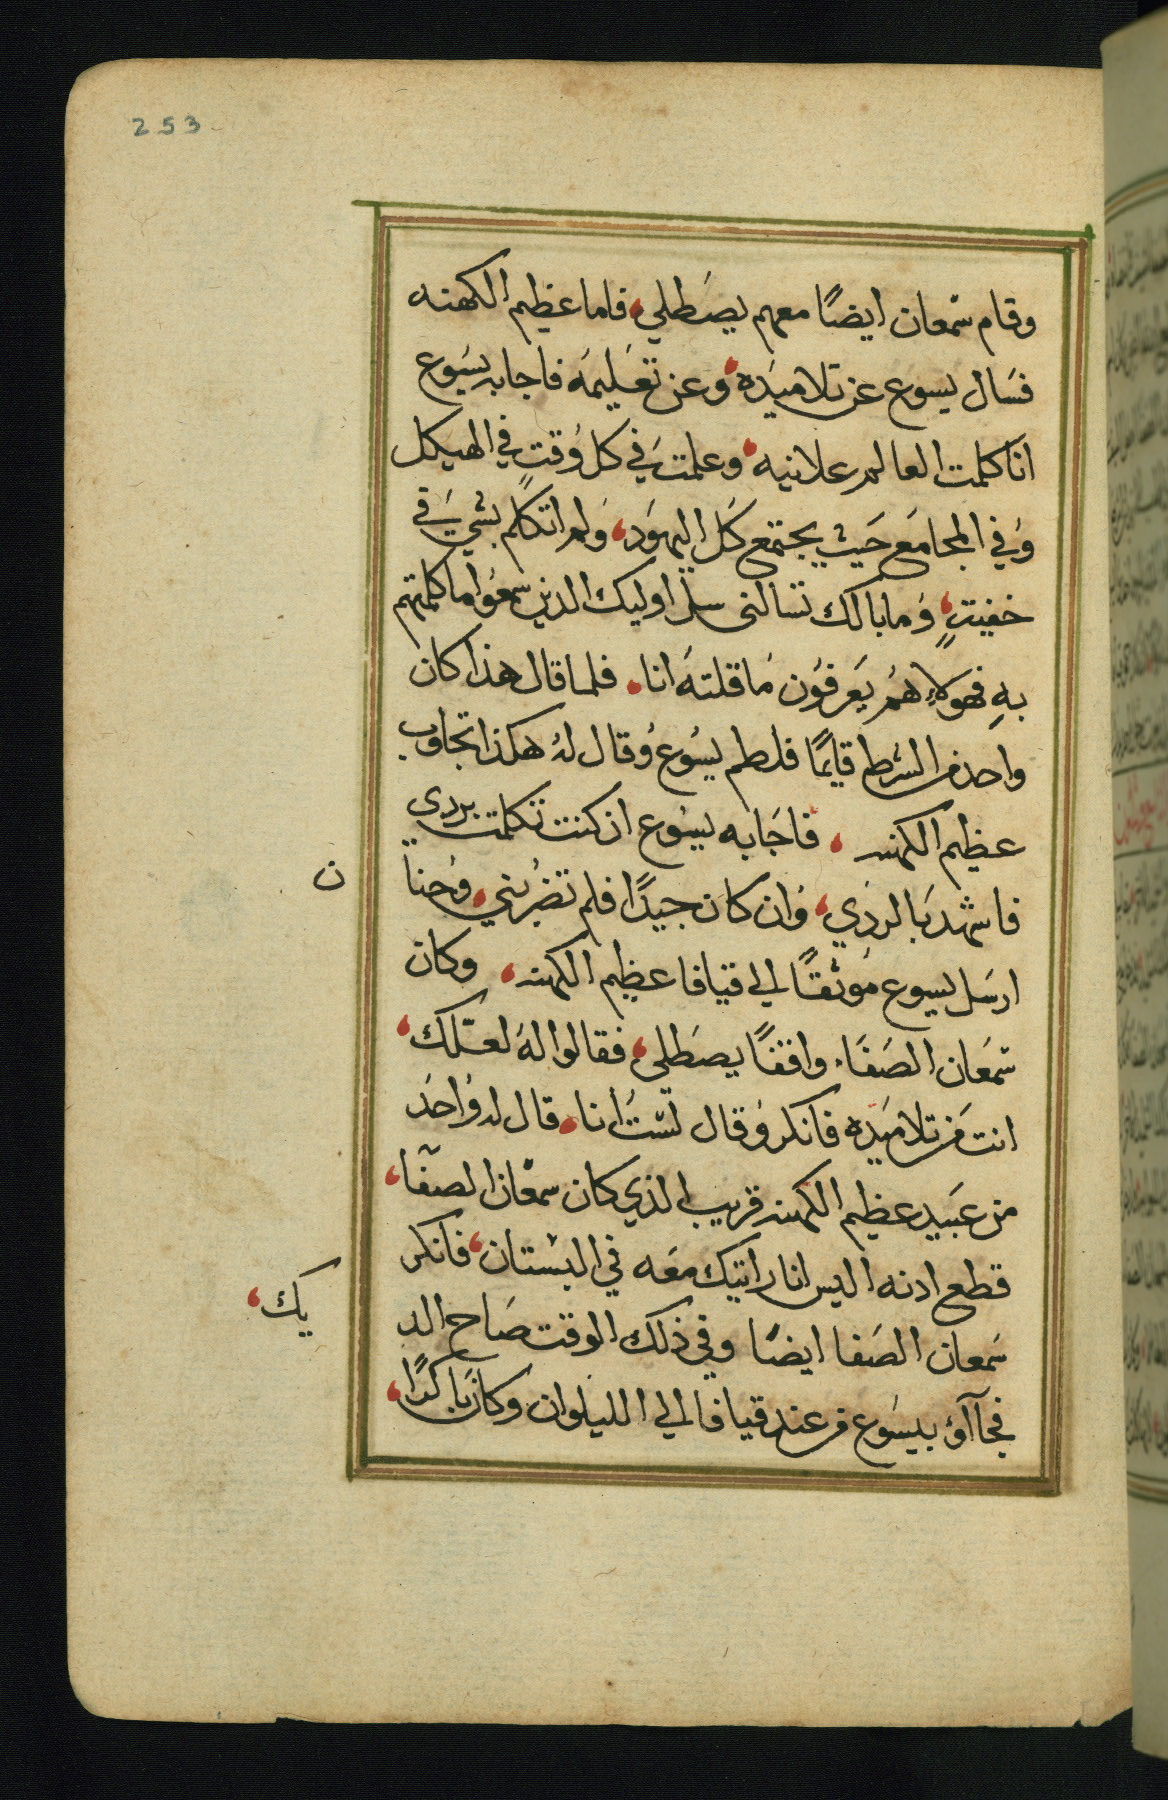 253
وقام شمعان ايضًا معهم يصطلي، فاما عظيم الكهنه
فسال يسوع عن تلاميده، وعن تعليمه فاجابه يسوع
انا كلمت العالم علانيه، وعلمت في كل وقت في الهيكل
وفي المجامع حيث يجتمع كل اليهود، ولم اتكلم بشي في
خفيتٍ، وما بالك تسالني سل اوليك الدين سمعوا ما كلمتهم
بهِ فهولاءِ همُ يعرفون ما قلته انا، فلما قال هذا كان
واحد من الشرط قايمًا فلطم يسوع وقال لهُ هكذا تجاوب
عظيم الكهنه، فاجابه يسوع ان كنت تكلمت بردي
فاشهد بالردي، وان كان جيدًا فلم تضربني، وحنا
ن
ارسل يسوع موثقًا الي قيافا عظيم الكهنه، وكان
شمعان الصفا، واقفًا يصطلي، فقالوا له لعلك،
انت من تلاميده فانكر وقال لستُ انا، قال له واحد
من عبيد عظيم الكهنه قريب الذي كان سمعان الصفا،
قطع ادنه اليس انا رايتك معه في البستان، فانكر
سمعان الصفا ايضًا وفي ذلك الوقت صاح الد
يك،
فجآاؤ بيسوع من عند قيافا الي الليلوان وكان باكرًا،